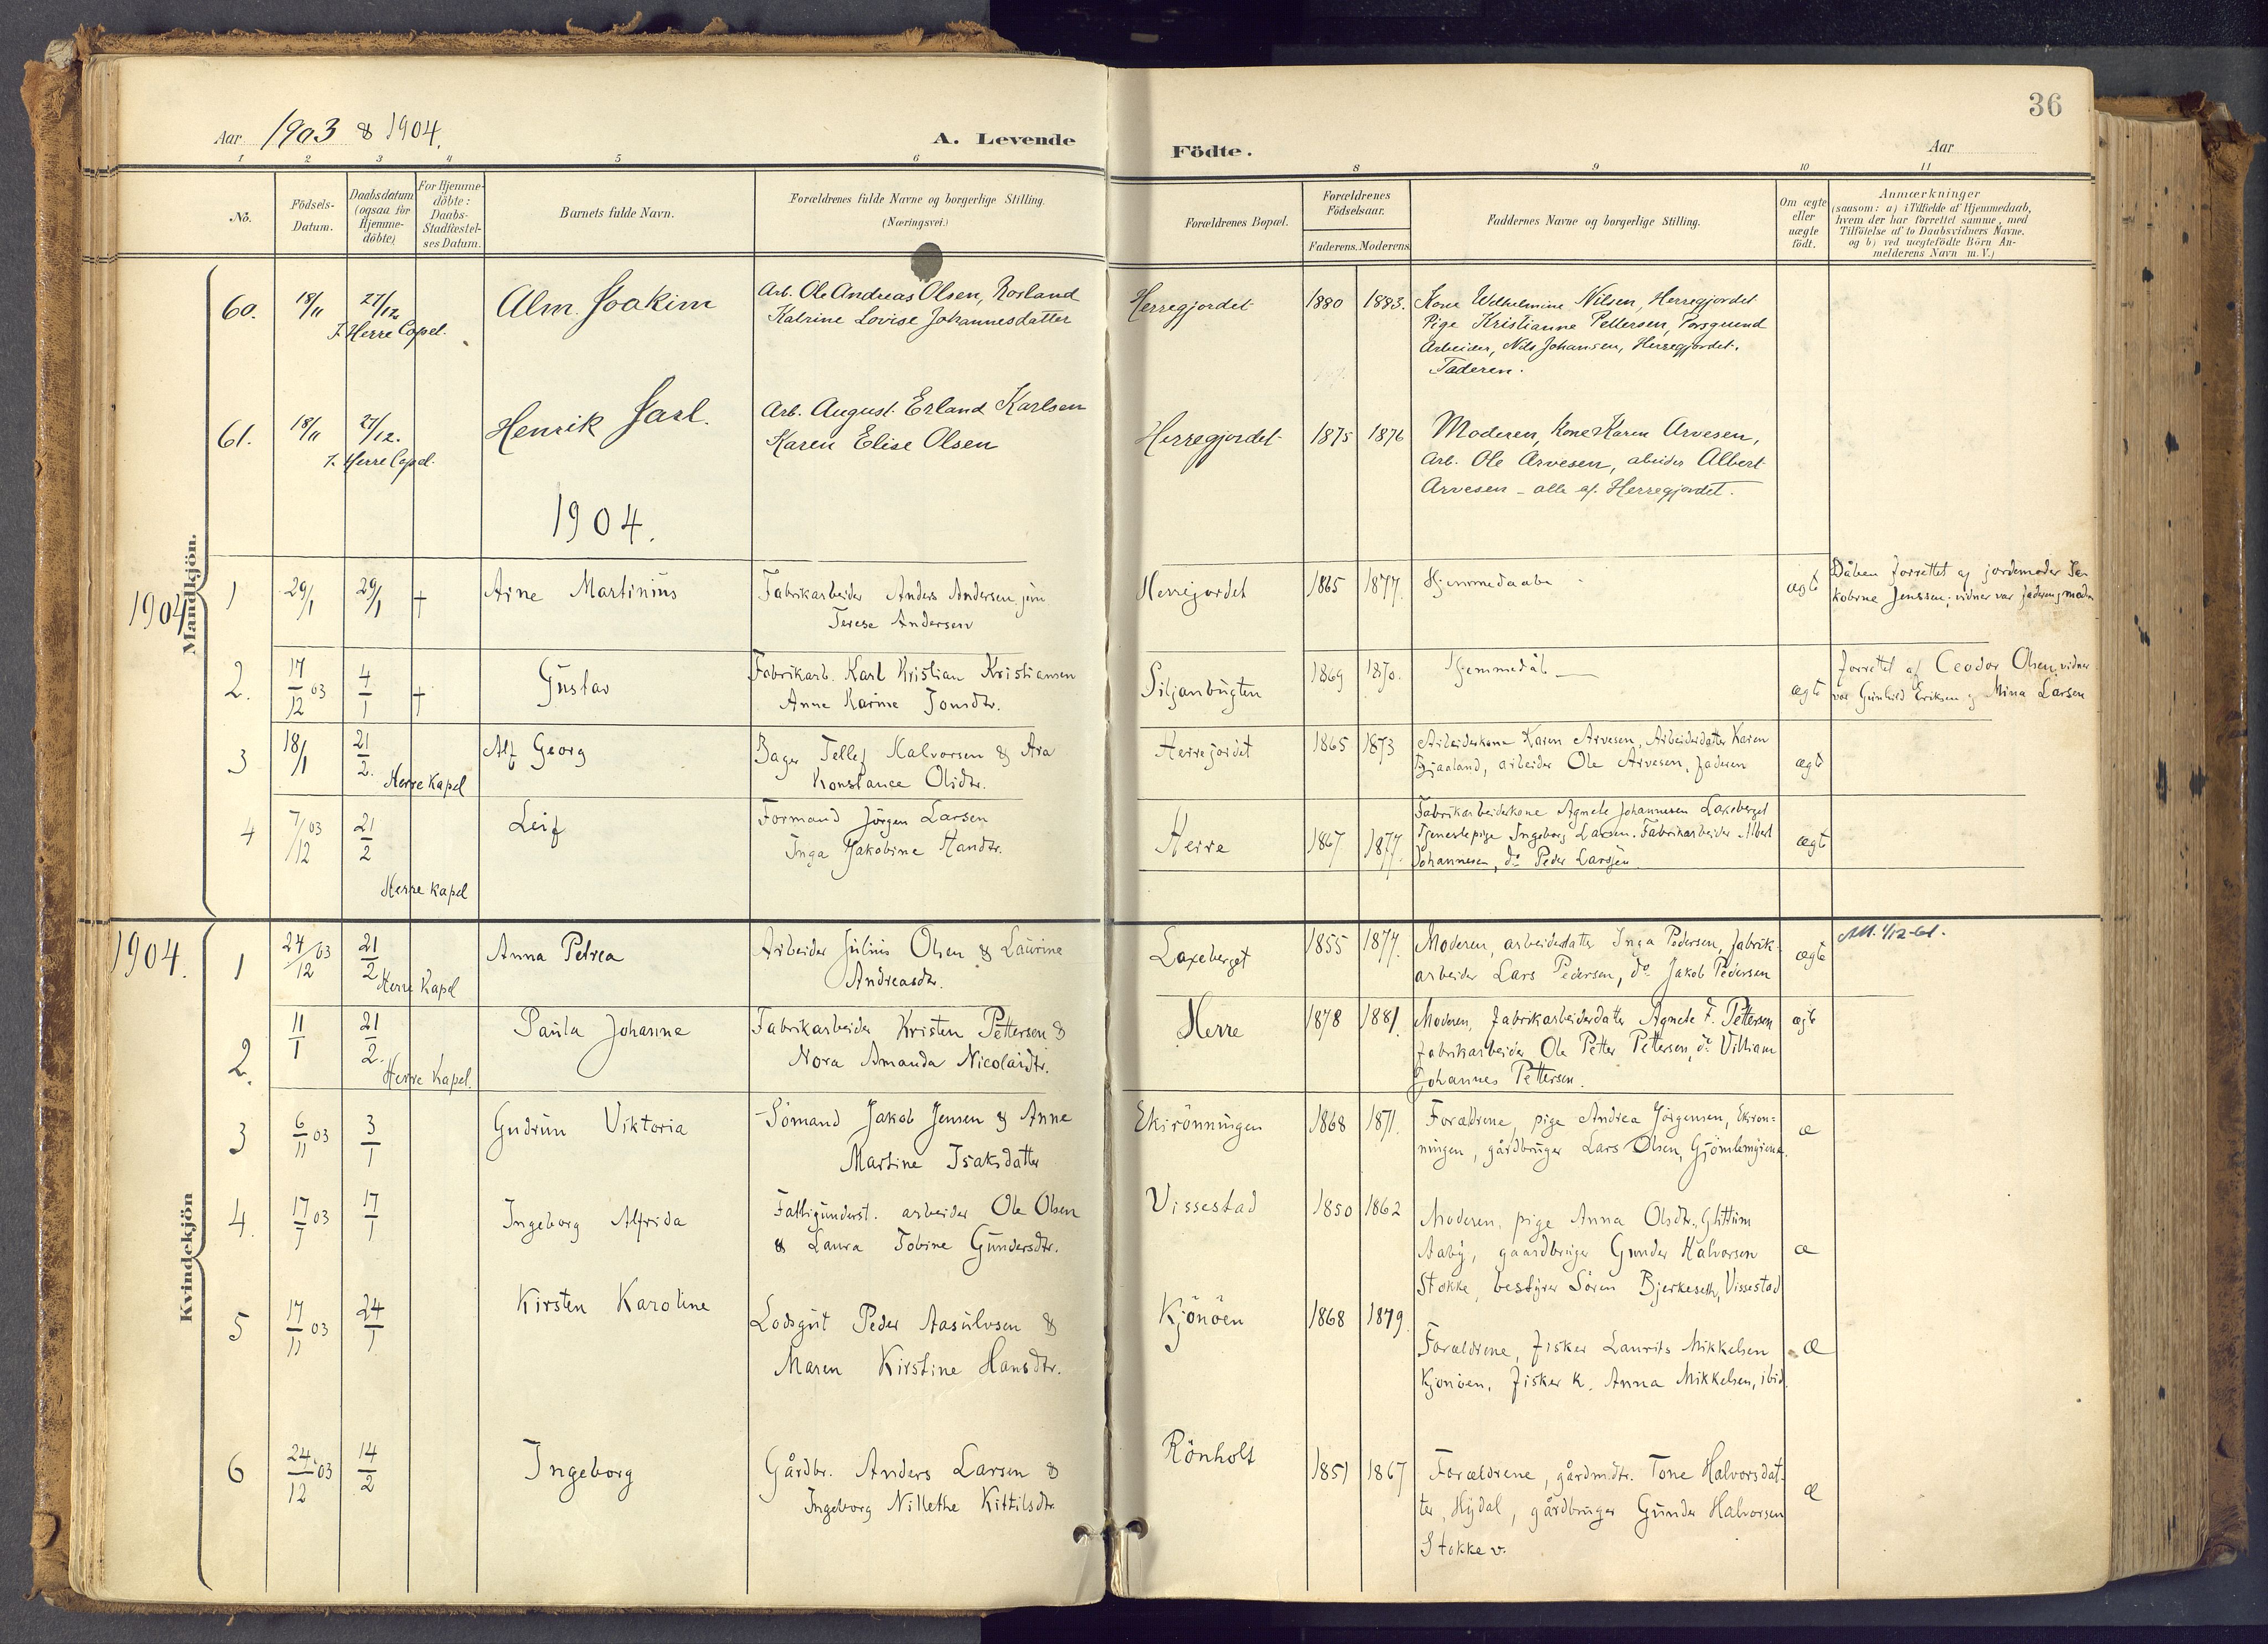 36
Aar 1903 & 1904.
A. Levende Födte.
Aar
1 2 3 4 5 6 8 9 10 11
No.
Födsels-Datum.
Daabsdatum (ogsaa for Hjemmedöbte)
For Hjemmedöbte: Daabs-Stadfæstelses Datum.
Barnets fulde Navn.
Forældrenes fulde Navne og borgerlige Stilling.
(Næringsvei.)
Forældrenes Bopæl.
Forældrenes Födselsaar.
Faderens. Moderens.
Faddernes Navne og borgerlige Stilling.
Om ægte eller uægte födt.
Anmærkninger
(saasom: a) i Tilfælde af Hjemmedaab,
hvem der har forrettet samme, med
Tilföielse af to Daabsvidners Navne.
og b) ved uægtefödte Börn An-
melderens Navn m. V.)
Mandkjön.
60. 18/11 27/12 Alm. Joakim Arb. Ole Andreas Olsen, Rosland Herregjordet 1880 1883. Kone Wilhelmine Nilsen, Herregjordet
I. Herre Capel. Katrine Lovise Johannesdatter Pige Kristianne Pettersen, Porsgrund
Arbeider, Nils Johansen, Herregjordet.
Faderen.
61. 18/11 27/12. Henrik Jarl. Arb. August Erland Karlsen Herregjordet 1875 1876 Moderen, Kone Karen Arvesen,
I. Herre Capel. Karen Elise Olsen Arb. Ole Arvesen, abeider Albert
Arvesen - alle af Herregjordet.
1904.
1904
1 29/1 29/1 † Arne Martinius Fabrikarbeider Anders Andersen jun Herrejordet 1865 1877. Hjemmedaab ægt Dåben forrettet af jordemoder Ja-
Terese Andersen kobine Jenssen; vidner var faderen, mode
2. 17/12 03 4/1 † Gustav Fabrikarb. Karl Kristian Kristiansen Siljanbugten 1869 1870. Hjemmedåb ægt forrettet af Ceodor Olsen, vidner
Anne Karine Jonsdtr. var Gunhild Eriksen og Mina Larsen
3 18/1 21/2. Alf Georg Bager Tellef Halvorsen & Ara Herrejordet 1865 1873 Arbeiderkone Karen Arvesen, Arbeiderdatter Karen
Herre Kapel Konstance Olsdtr. Bjaaland, arbeider Ole Arvesen, faderen ægt
4 7/12 03 21/2 Leif Formand Jörgen Larsen Herre 1867. 1877. Fabrikarbeiderkone Agnete Johannesen Laxeberget
Inga Jakobine Handtr. Tjenestepige Ingeborg Larsen. Fabrikarbeider Albert ægt
Herre Kapel Johannesen, do Peder Larsen
1904.
Kvindekjön
1 24/12 03 21/2 Anna Petrea Arbeider Julius Olsen & Laurine Laxeberget 1855 1877. Moderen, arbeiderdatter Inga Pedersen, fabrik- ægte Att. 1/12-61.
Herre Kapel Andreasdtr. arbeider Lars Pedersen, do Jakob Pedersen
2. 11/1 21/2. Paula Johanne Fabrikarbeider Kristen Pettersen & Herre 1878 1881. Moderen, fabrikarbeiderdatter Agnete F. Pettersen ægt
Herre Kapel. Nora Amanda Nicolaidtr. fabrikarbeider Ole Petter Pettersen, do Villiam
Johannes Pettersen.
3 6/11 03 3/1 Gudrun Viktoria Sömand Jakob Jensen & Anne Ekirönningen 1868 1871. Forældrene, pige Andrea Jörgensen, Ekirön- æ
Martine Isaksdatter ningen, gårdbruger Lars Olsen, Gjömlemyrene.
4. 17/7 03 17/1 Ingeborg Alfrida Fattigunderst. arbeider Ole Olsen Vissestad 1850 1862 Moderen, pige Anna Olsdtr., Glittum
& Laura Tobine Gundersdtr. Aaby, gaardbruger Gunder Halvorsen æ
Stokke, bestyrer Sören Bjerkeseth, Vissestad
5 17/11 03 24/1 Kirsten Karoline Lodsgut Peder Aasulvsen & Kjönöen 1868 1879. Forældrene, fisker Laurits Mikkelsen æ
Maren Kirstine Hansdtr. Kjönöen, fisker k. Anna Mikkelsen, ibid.
6 24/12 03 14/2 Ingeborg Gårdbr. Anders Larsen & Rönholt 1851 1867 Forældrene, gårdmdtr. Tone Halvorsdat-
Ingeborg Nillethe Kittilsdtr. ter, Hydal, gårdbruger Gunder Halvorsen æ
Stokke v.